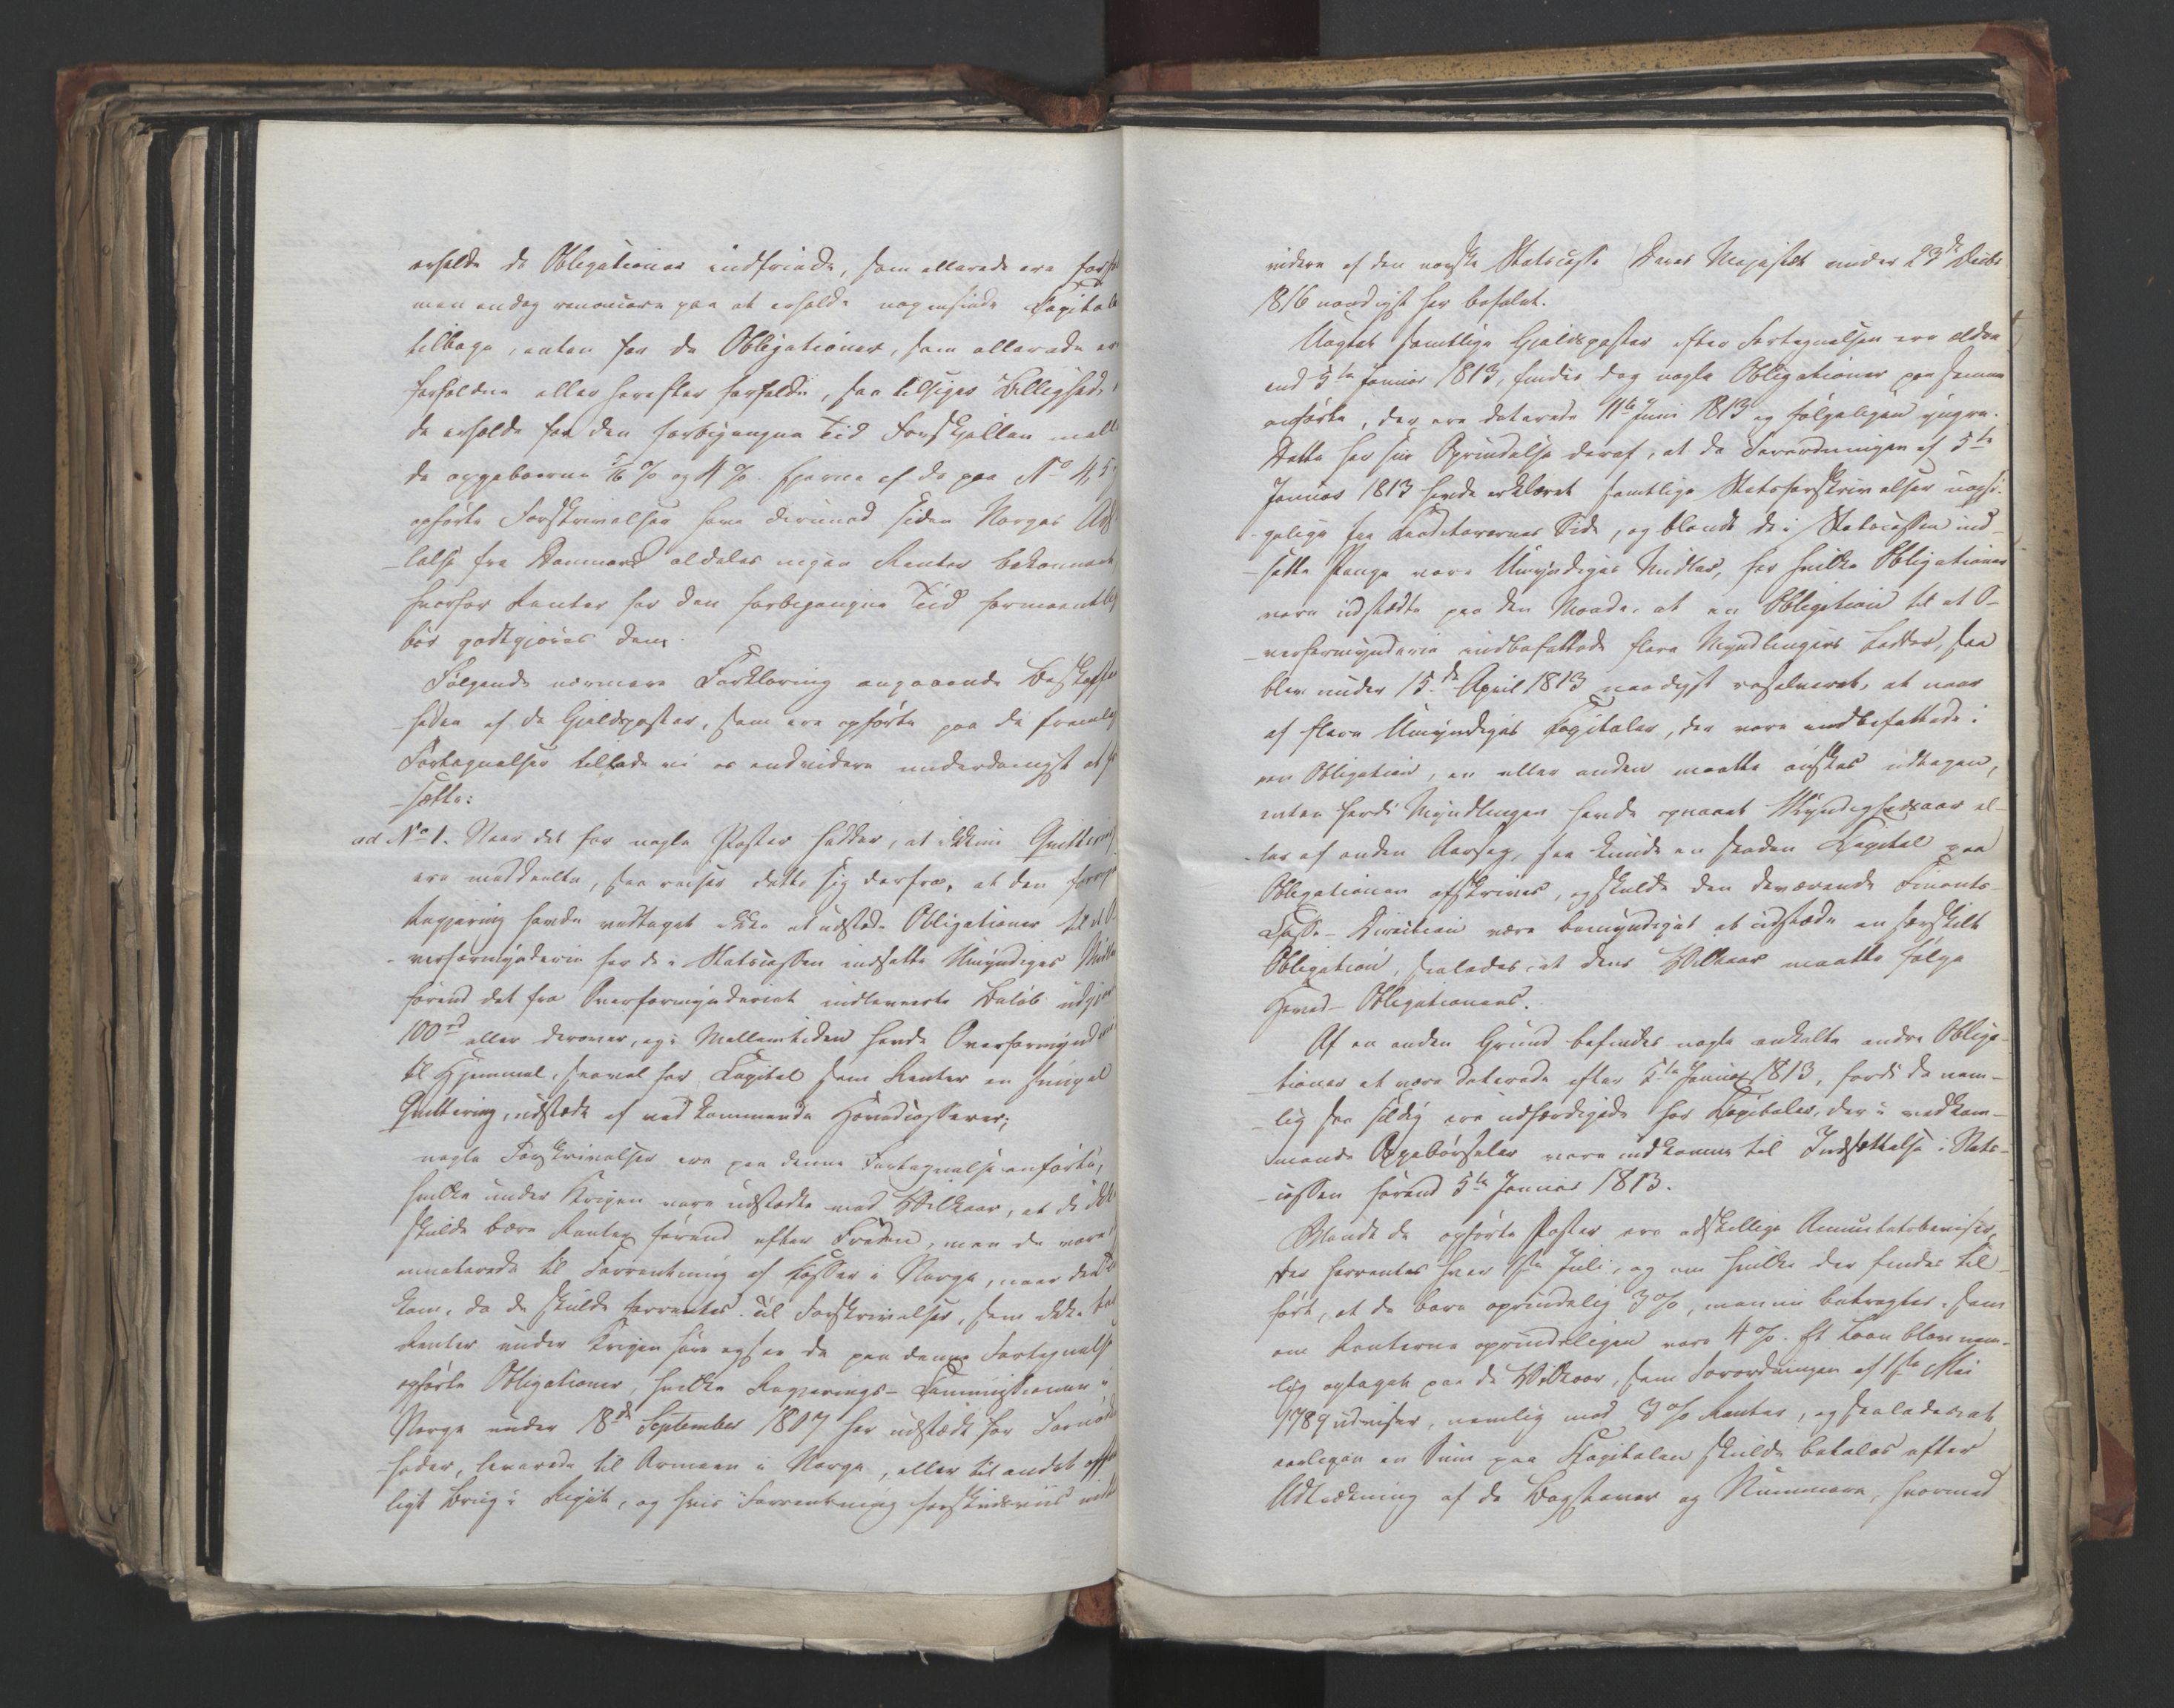 erholde de Obligationer indfriede, som allerede ere
men endog renoncere paa at erholde nogensinde Capitalen
tilbage, enten for de Obligationer, som allerede ere
forfaldne eller herefter forfalde, saa tilsiger Billighed,
de erholde for den forbigangne Tid Forskjellen mell
de oppebaarne 5/16 % og 4 %. Eierne af de paa No 4, 5,
opførte Forskrivelser have derimod siden Norges Ad
-lelse fra Danmark aldeles ingen Renter bekommet
hvorfor Renter for den forbigangne Tiid formeentlig
bør godtgjøres dem.
Følgende nærmere Forklaring angaaende Beskaffen
-heden af de Gjeldsposter, som ere opførte paa de fremlag
Fortegnelser tillade vi os endvidere underdanigst at
-sætte:
ad No 1. Naar det for nogle Poster hedder, at ikkun Quittering
ere meddeelte, saa reiser dette sig derfra, at den forrige
Regjering havde vedtaget ikke at udstæde Obligationer til et O-
-verformynderie for de i Statscassen indsatte Umyndiges Midler
førend det fra Overformynderiet indleverte Beløb udgjør
100 rd eller derover, og i Mellemtiden havde Overformynderi
til Hjemmel, saavel for Capital som Renter en simpel
Quittering, udstædt af vedkommende Hovedcasserer;
nogle Forskrivelser ere paa denne Fortegnelse anførte,
hvilke under Krigen vare udstædte med Vilkaar, at de ikke
skulde bære Renter førend efter Freden, men de vare
annoterede til Forrentning af Casser i Norge, naar den
kom, da de skulde forrentes. Til Forskrivelser, som ikke
Renter under Krigen høre ogsaa de paa denne Fortegnelse
opførte Obligationer, hvilke Regjerings-Commissionen i
Norge under 18de September 1807 har udstædt for Fornøden
-heder, leverede til Armeen i Norge, eller til andet offent
ligt Brug i Riget, og hvis Forrentning forskudsviis
videre af den norske Statscasse Deres Majestæt under 23de Decbr
1816 naadigst har befalet.
Uagtet samtlige Gjeldsposter efter Fortegnelsen ere ældre
end 5te Januar 1813, findes dog nogle Obligationer paa samme
anførte, der ere daterede 11te Juni 1813 og følgeligen yngre.
Dette har sin Oprindelse deraf, at da Forordningen af 5te
Januar 1813 havde erklæret samtlige Statsforskrivelser uopsi-
-gelige fra Creditorernes Side, og blandt de i Statscassen ind-
-satte Penge vare Umyndiges Midler, for hvilke Obligationer
vare udstædte paa den Maade, at en Obligation til et O-
-verformynderie indbefattede flere Myndlingers Lodder, saa
blev under 15de April 1813 naadigst resolveret, at naar
af flere Umyndiges Capitaler, der vare indbefattede i
een Obligation, en eller anden maatte ønskes udtagen,
enten fordi Myndlingen havde opnaaet Myndighedsaar el-
-ler af anden Aarsag, saa kunde en saadan Capital paa
Obligationen afskrives, og skulde den daværende Finants-
Casse-Direction være bemyndiget at udstæde en særskilt
Obligation, saaledes, at dens Vilkaar maatte følge
Hoved-Obligationens.
Af en anden Grund befindes nogle enkelte andre Obliga-
tioner at være daterede efter 5te Januar 1813, fordi de nem-
-lig saa sildig ere udfærdigede for Capitaler, der i vedkom-
mende Oppebørseler vare indkomne til Indsættelse i Stats-
-cassen førend 5te Januar 1813.
Blandt de opførte Poster ere adskillige Annuitetsbeviser
der forrentes hver 1ste Juli, og om hvilke der findes til-
ført, at de bære oprindelig 3 %, men nu betragtes, som
om Renterne oprindeligen vare 4 %. Et Laan blev nem-
lig optaget paa de Vilkaar, som Forordningen af 1ste Mai
1789 udviser, nemlig mod 3 % Renter, og saaledes at
aarligen en Sum paa Capitalen skulde betales efter
Udtrækning af de Bogstaver og Nummere, hvormed